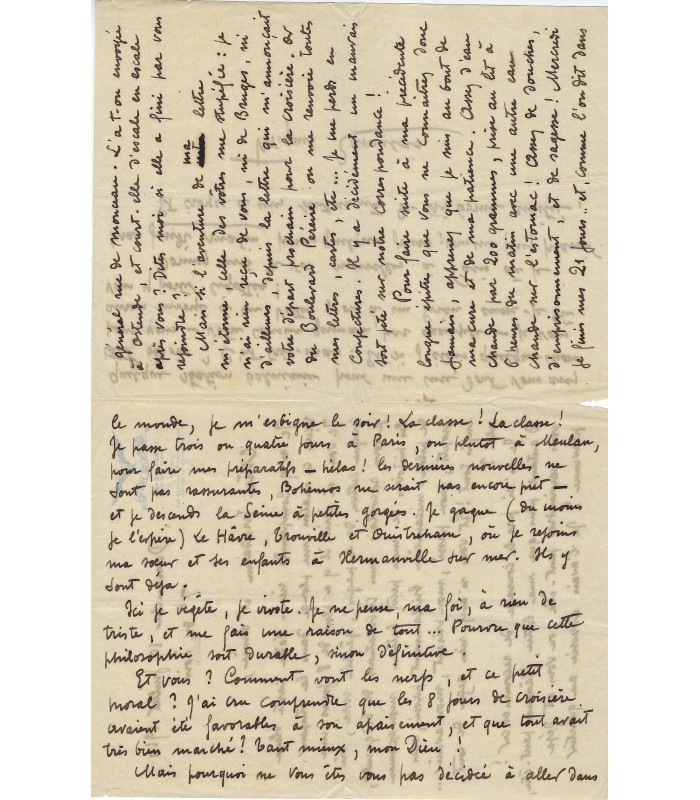 général rue de monceau. L'a t-on envoyée
à Ostende, et court-elle d'escale en escale
après vous ? Dites moi si elle a fini par vous
rejoindre ?
Mais si l'aventure de ma lettre
m'étonne, celle des vôtres me stupéfie : je
n'ai rien reçu de vous, ni de Bruges, ni
d'ailleurs, depuis la lettre qui m'annonçait
votre départ prochain pour la croisière. Or
du Boulevard Péreire on me renvoie toutes
mes lettres, cartes, etc... Je me perds en
conjectures. Il y a décidément un mauvais
sort jeté sur notre correspondance !
Pour faire suite à ma précédente
longue épître que vous ne connaîtrez donc
jamais, apprenez que je suis au bout de
ma cure et de ma patience. Assez d'eau
chaude par 200 grammes, prise au lit à
6 heures du matin avec une autre eau
chaude sur l'estomac ! Assez de douches,
d'emprisonnement, et de sagesse ! Mercredi
je finis mes 21 jours.. et, comme l'on dit dans
le monde, je m'esbigne le soir ! La classe ! La classe !
Je passe trois ou quatre jours à Paris, ou plutôt à Meulan,
pour faire mes préparatifs – hélas ! les dernières nouvelles ne
sont pas rassurantes, Bohémos ne serait pas encore prêt –
et je descends la Seine à petites gorges. Je gagne (du moins
je l'espère) Le Hâvre, Trouville et Ouistreham, où je rejoins
ma sœur et ses enfants à Hermanville sur mer. Ils y
sont déjà.
Ici je végète, je vivote. Je ne pense, ma foi, à rien de
triste, et me fais une raison de tout... Pourvu que cette
philosophie soit durable, sinon définitive.
Et vous ? Comment vont les nerfs, et ce petit
moral ? J'ai cru comprendre que les 8 jours de croisière
avaient été favorables à son apaisement, et que tout avait
très bien marché ? Tant mieux, mon Dieu !
Mais pourquoi ne vous êtes vous pas décidée à aller dans